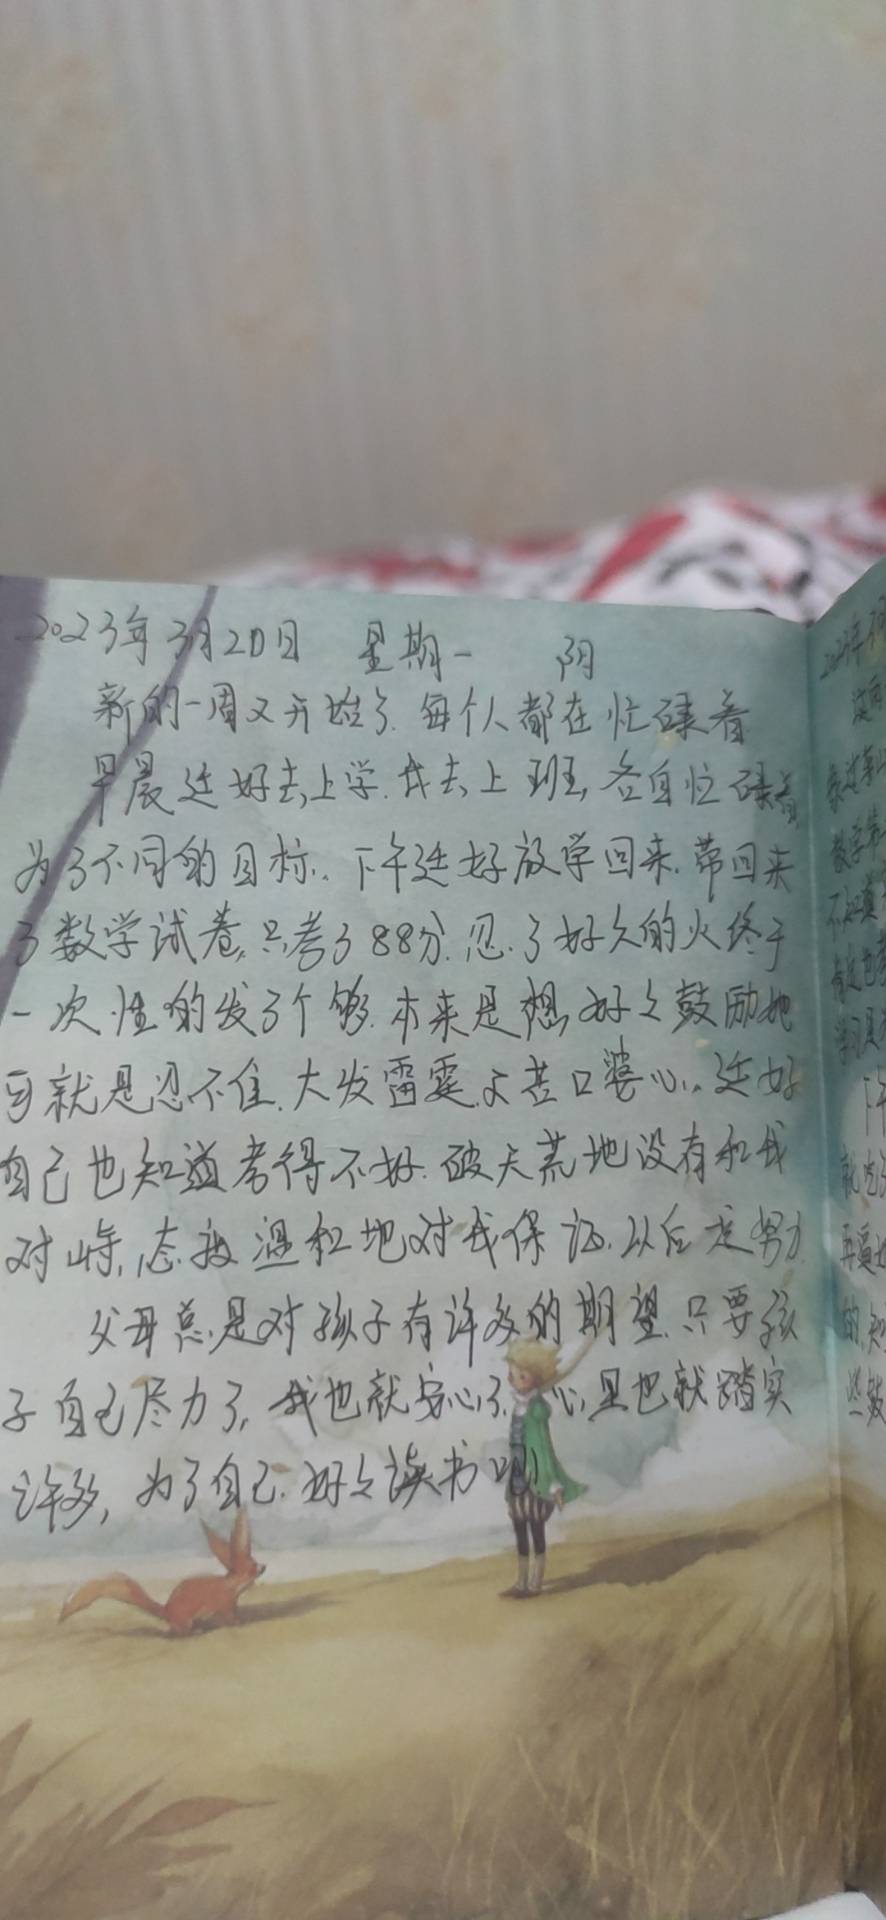 2023年3月20日 星期一 阴
新的一周又开始了.每个人都在忙碌着
早晨廷好去上学.我去上班,各自忙碌着
为了不同的目标.下午廷好放学回来.带回来
了数学试卷,只考了88分.忍了好久的火终于
一次性的发了个够.本来是想好々鼓励她
可就是忍不住.大发雷霆,又苦口婆心.廷好
自己也知道考得不好.破天荒地没有和我
对峙,态度温和地对我保证.以后定努力.
父母总是对孩子有许多的期望.只要孩
子自己尽力了,我也就安心了.心里也就踏实
许多,为了自己.好々读书吧!
2023年
教学
下午
就
再逼
的